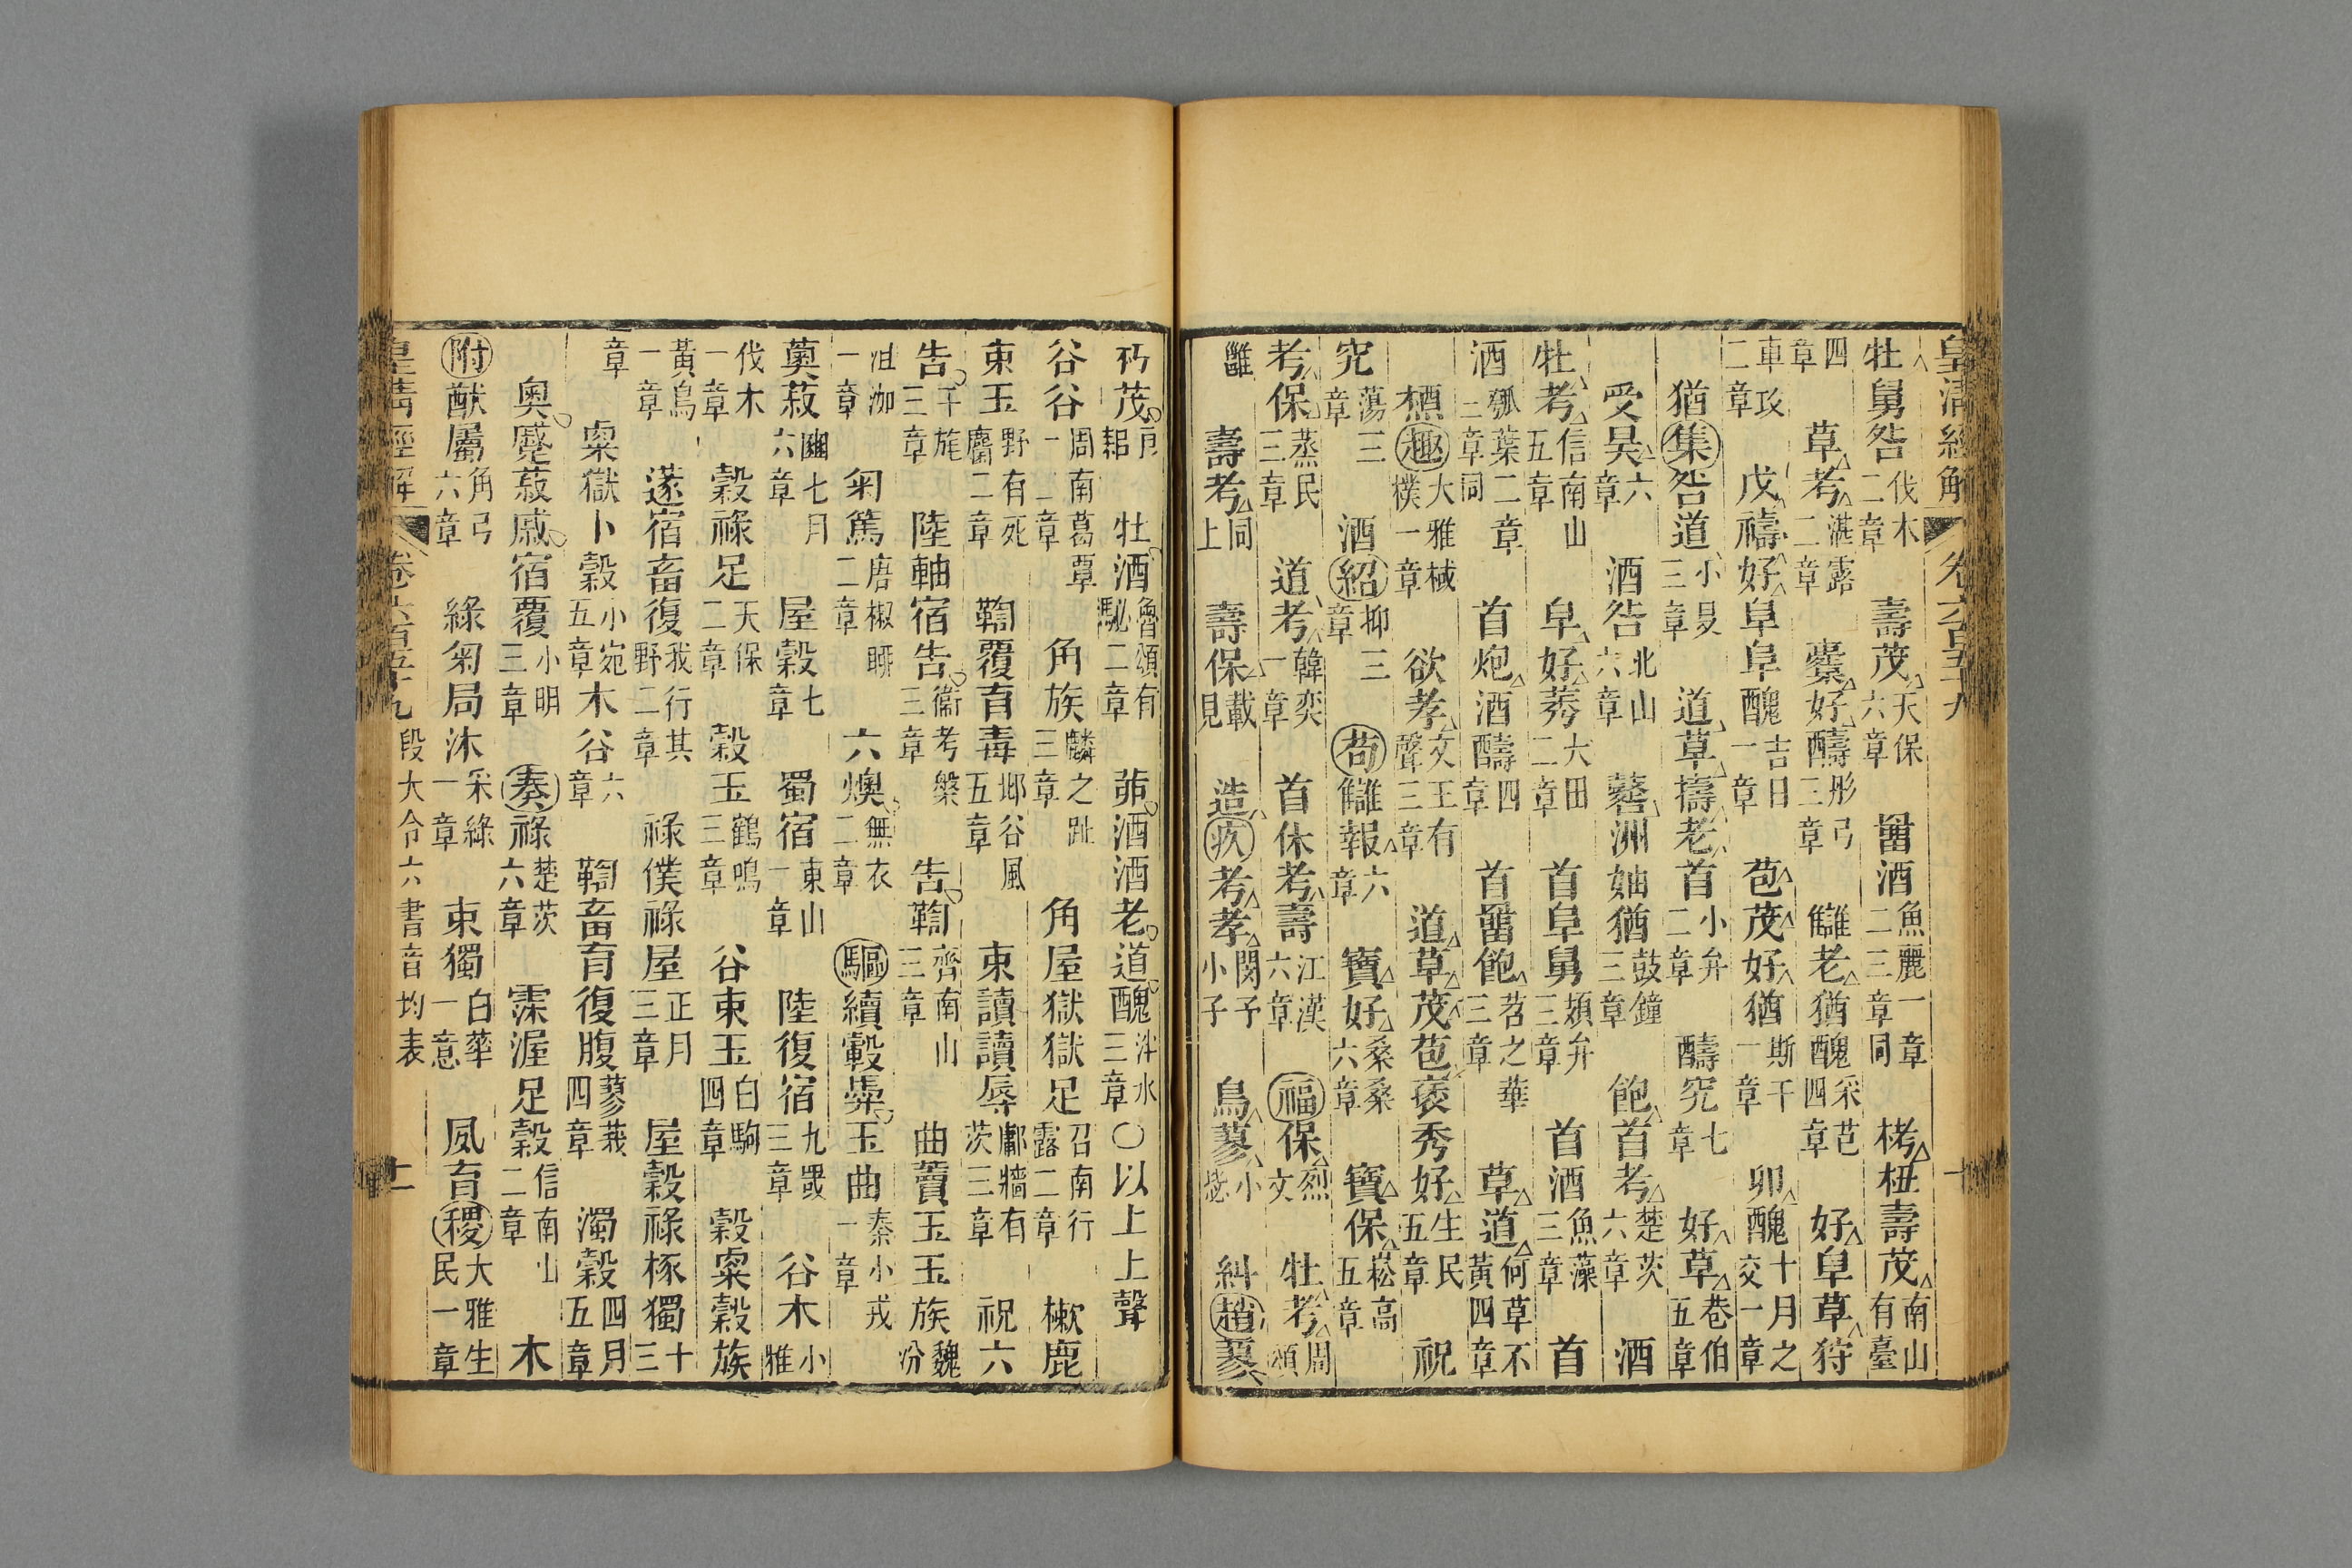 皇清經解 卷六百五十九 十
牡舅咎伐木二章 壽茂天保六章 罶酒魚麗一章二三章同 栲杻壽茂南山有臺
四章 草考湛露二章 櫜好醻彤弓三章 讎老猶醜采芑四章 好阜草狩
車攻二章 戊禱好阜阜醜吉日一章 苞茂好猶斯干一章 卯醜十月之交一章
猶集咎道小旻三章 道草擣老首小弁二章 醻究七章 好草巷伯五章
受昊六章 酒咎北山六章 鼛洲妯猶鼓鐘三章 飽首考楚茨六章 酒
牡考信南山五章 皁好莠大田二章 首阜舅頍弁三章 首酒魚藻三章 首
酒瓠葉二章三章同 首炮酒醻四章 首罶飽苕之華三章 草道何草不黃四章
槱趣大雅棫樸一章 欲孝文王有聲三章 道草茂苞褎秀好生民五章 祝
究蕩三章 酒紹抑三章 苟讎報六章 寶好桑桑六章 寶保崧高五章
考保蒸民三章 道考韓奕一章 首休考壽江漢六章 福保烈文 牡考周頌
雝 壽考同上 壽保載見 造疚考孝閔予小子 鳥蓼小毖 糾趙蓼
朽茂 牡酒魯頌有駜二章 茆酒酒老道醜泮水三章〇以上上聲
谷谷周南葛覃一二章 角族麟之趾三章 角屋獄獄足召南行露二章 樕鹿
束玉野有死麕二章 鞫覆育毒邶谷風五章 束讀讀辱鄘牆有茨三章 祝六
告干旄三章 陸軸宿告衞考槃三章 告鞫齊南山三章 曲藚玉玉族魏汾
沮洳一章 匊篤唐椒聊二章 六燠無衣二章 驅續轂馵玉曲秦小戎一章
薁菽豳七月六章 屋穀七章 蜀宿東山一章 陸復宿九罭三章 谷木小雅
伐木一章 穀祿足天保二章 穀玉鶴鳴三章 谷束玉白駒四章 穀粟穀族
黃鳥一章 蓫宿畜復我行其野二章 祿僕祿屋正月三章 屋穀祿椓獨十三
章 粟獄卜穀小宛五章 木谷六章 鞫畜育復腹蓼莪四章 濁穀四月五章
奧蹙菽戚宿覆小明三章 奏祿楚茨六章 霂渥足穀信南山二章 木
附猷屬角弓六章 綠匊局沐采綠一章 束獨白華一意 夙育稷大雅生民一章
皇清經解 卷六百五十九 段大令六書音均表 十一